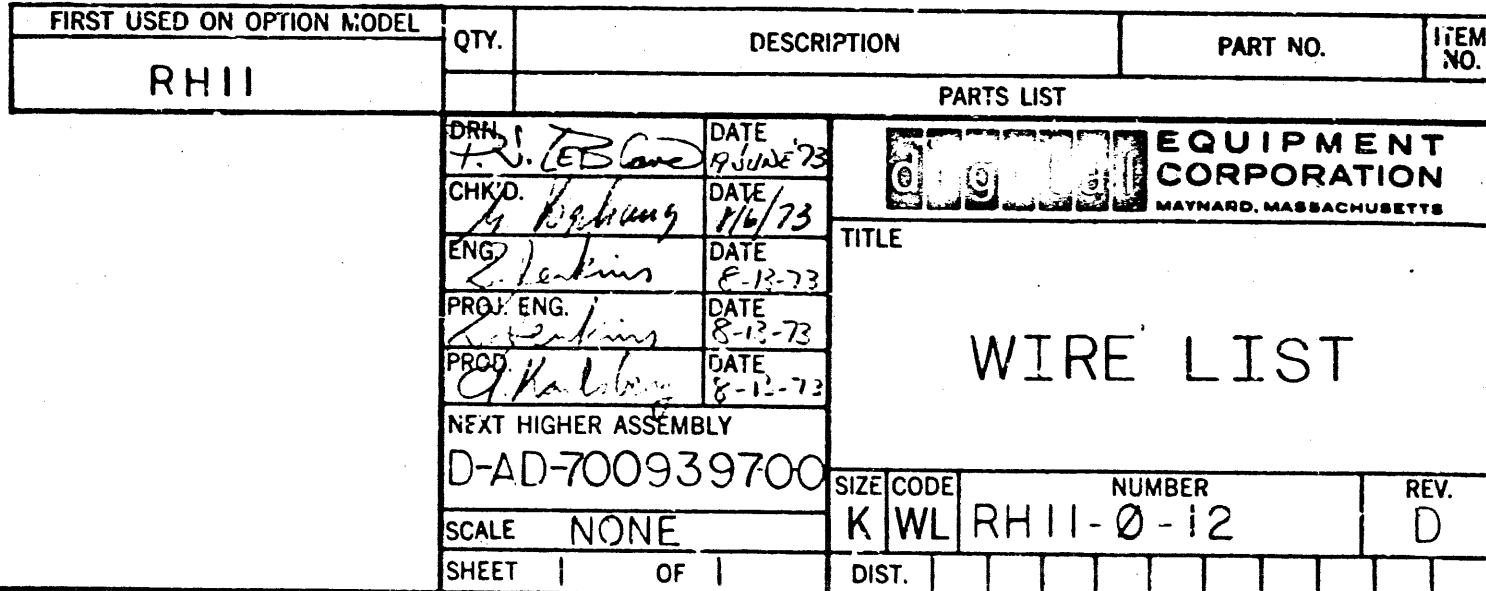 FIRST USED ON OPTION MODEL
RH11
QTY.
DESCRIPTION
PART NO.
ITEM NO.
PARTS LIST
DRN.
DATE
19 JUNE '73
CHK'D.
DATE
8/6/73
ENG.
L. Perkins
DATE
8-13-73
PROJ. ENG.
L. Perkins
DATE
8-13-73
PROD.
DATE
8-13-73
NEXT HIGHER ASSEMBLY
D-AD-7009397-0-0
SCALE NONE
SHEET 1 OF 1
digital EQUIPMENT
CORPORATION
MAYNARD, MASSACHUSETTS
TITLE
WIRE LIST
SIZE CODE NUMBER REV.
K WL RH11-Ø-12 D
DIST.